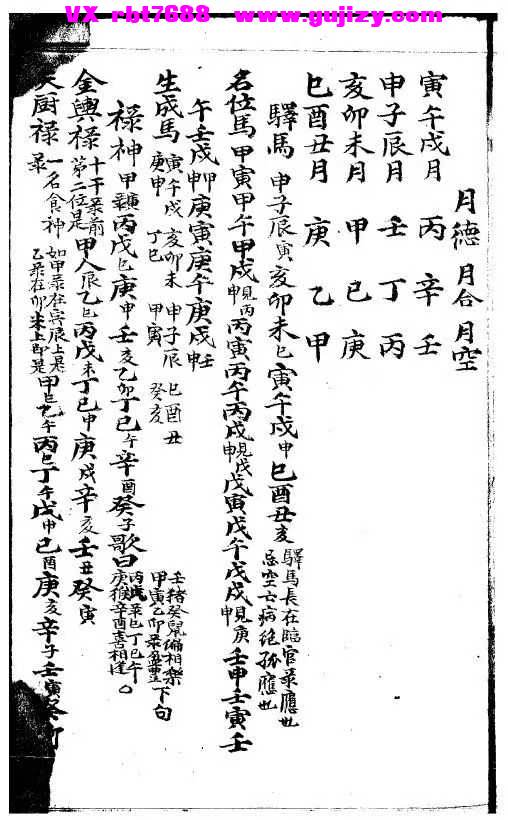 VX rbt7688 www.gujizy.com
月德 月合 月空
寅午戌月 丙 辛 壬
申子辰月 壬 丁 丙
亥卯未月 甲 巳 庚
巳酉丑月 庚 乙 甲
驛馬 申子辰寅 亥卯未巳 寅午戌申 巳酉丑亥 驛馬長在臨官彔應也 忌空亡病絕孤應也
名位馬 甲寅甲午甲戌見丙申 丙寅丙午丙戌見戊申 戊寅戊午戊戌見庚申 壬申壬寅壬
午壬戌甲申 庚寅庚午庚戌壬申
生成馬 寅午戌庚申 亥卯未丁巳 申子辰甲寅 巳酉丑癸亥
祿神 甲彔寅 丙戊巳 庚申 壬亥 乙卯 丁巳午 辛酉 癸子 歌曰 壬猪癸鼠偏相樂 甲寅乙卯彔盈豊 丙戊彔巳丁巳午 庚猴辛酉喜相逢 下句
金輿祿 十干彔前第二位是 甲人辰 乙巳 丙戊未 丁巳申 庚戌 辛亥 壬丑 癸寅
天厨祿 一名食神 如甲彔在寅辰上是 乙彔在卯未上卽是 甲巳 乙午 丙巳 丁午 戊申 巳酉 庚亥 辛子 壬寅